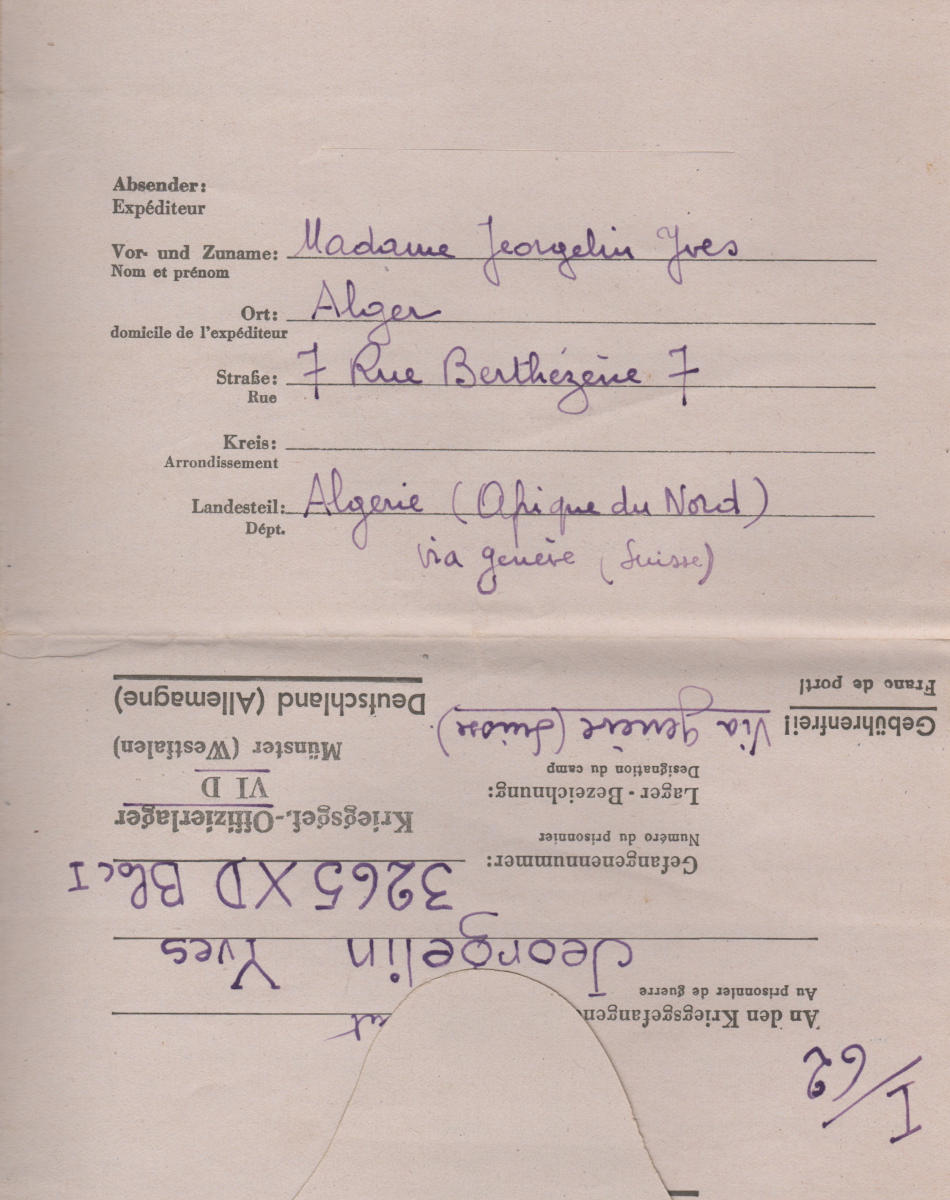 Absender:
Expéditeur
Vor- und Zuname: Madame Jeorgelin Yves
Nom et prénom
Ort: Alger
domicile de l'expéditeur
Straße: 7 Rue Berthézène 7
Rue
Kreis:
Arrondissement
Landesteil: Algerie (Afrique du Nord)
Dépt.
via genève (Suisse)
I/62
An den Kriegsgefangen
Au prisonnier de guerre
Jeorgelin Yves
Gefangenennummer: 3265 XD Bloc I
Numéro du prisonnier
Kriegsgef.-Offizierlager
Lager-Bezeichnung: VI D
Désignation du camp
Münster (Westfalen)
Gebührenfrei! Via genève (Suisse)
Franc de port!
Deutschland (Allemagne)